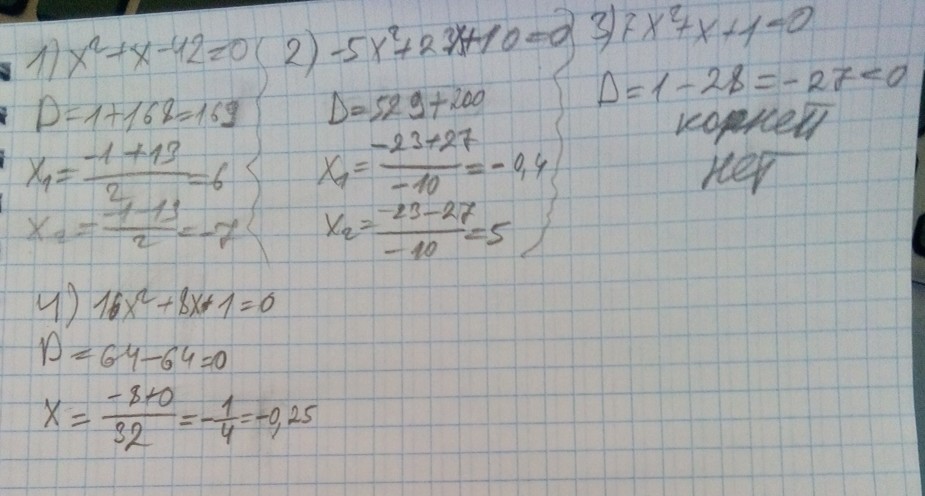 1) x²+x-42=0
D=1+168=169
x₁=(-1+13)/2=6
x₂=(-1-13)/2=-7
2) -5x²+23x+10=0
D=529+200
x₁=(-23+27)/(-10)=-0,4
x₂=(-23-27)/(-10)=5
3) 7x²+x+1=0
D=1-28=-27<0
корней
нет
4) 16x²+8x+1=0
D=64-64=0
x=(-8+0)/32=-1/4=-0,25